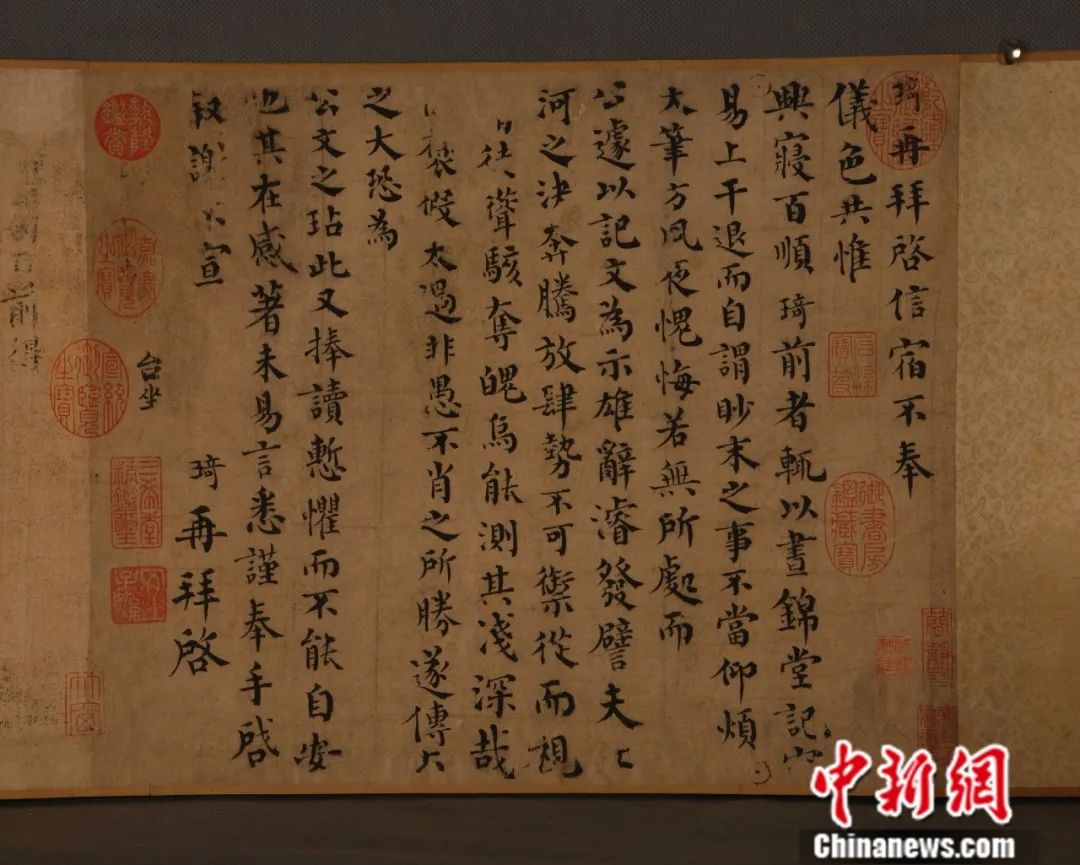 琦再拜啓信宿不奉
儀色共惟
興寢百順琦前者輒以晝錦堂記
易上干退而自謂眇末之事不當仰煩
大筆方夙夜愧悔若無所處而
公遽以記文為示雄辭濬發譬夫
河之決奔騰放肆勢不可禦從而視
徒聳駭奪魄烏能測其淺深哉
褒假太過非愚不肖之所勝遂傳
之大恐為
公文之玷此又捧讀慙懼而不能自安
也其在感著未易言悉謹奉手啓
叙謝不宣
琦再拜啓
台坐
嘉慶御覽之寶
宣統御覽之寶
三希堂精鑑璽
宜子孫
御書房鑑藏寶
乾隆鑑賞
前得
中新網
Chinanews.com